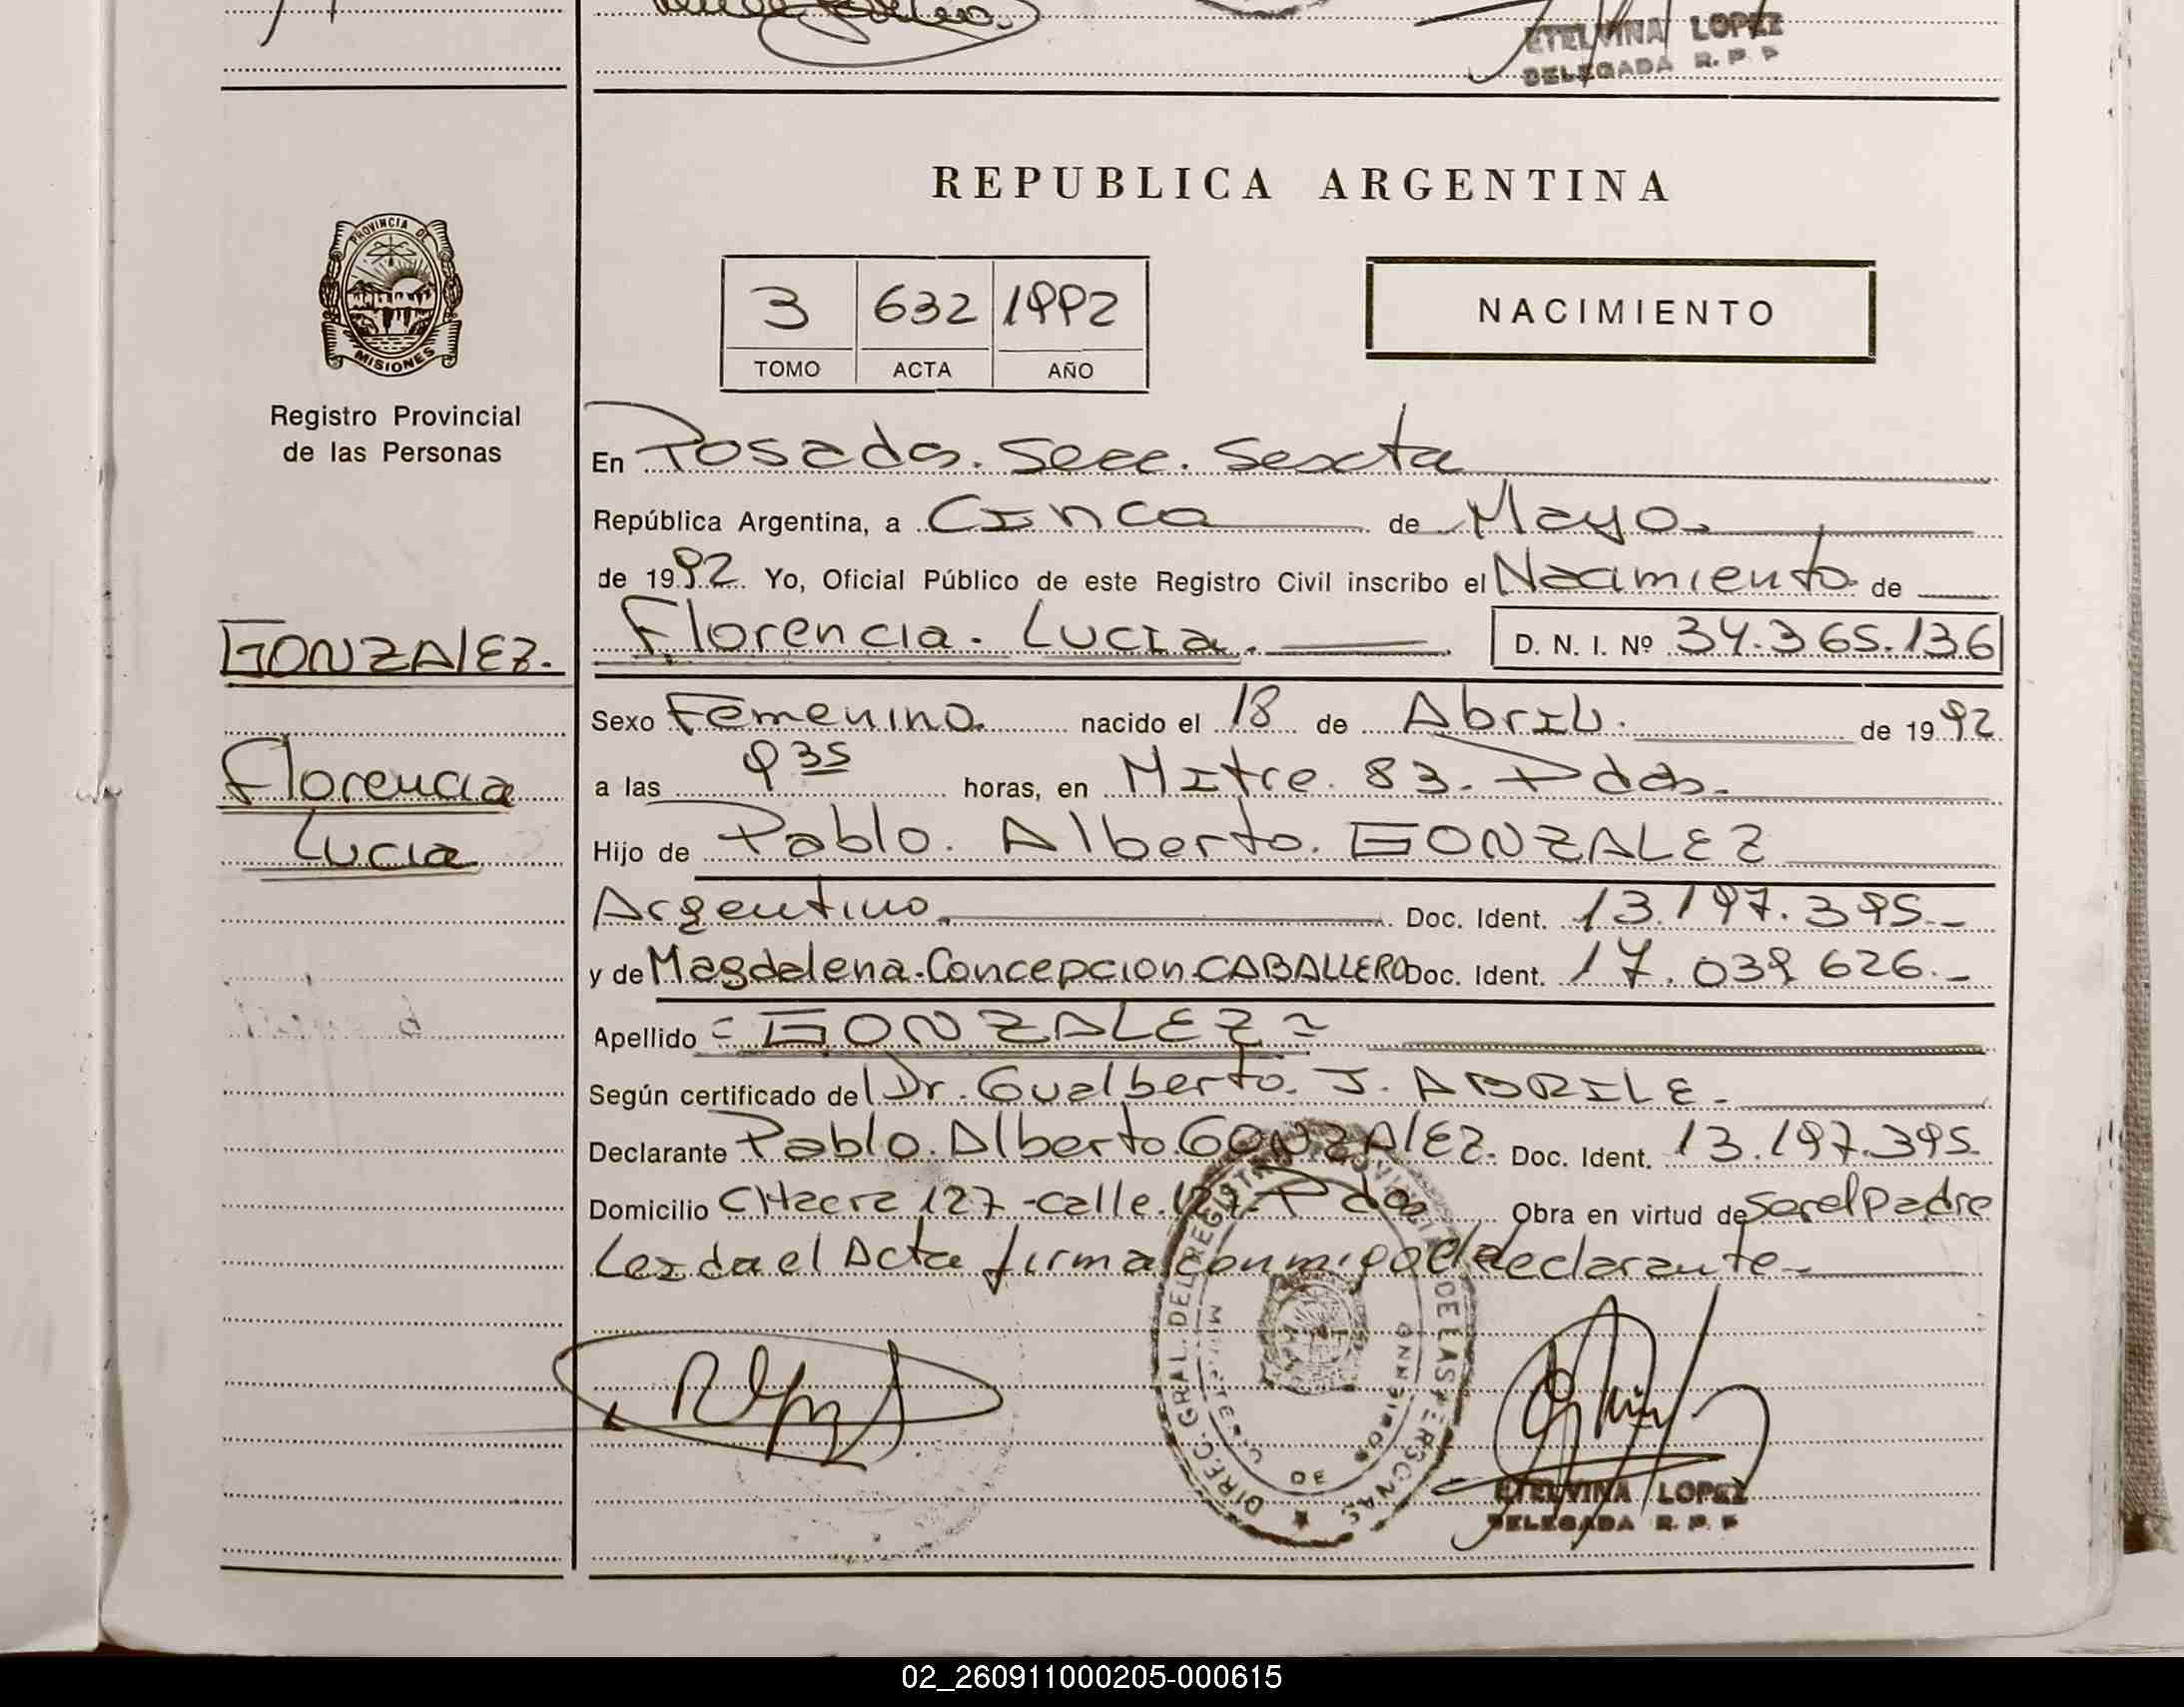 ETELVINA LOPEZ
DELEGADA R. P. P
REPUBLICA ARGENTINA
PROVINCIA DE
MISIONES
3 632 1992
TOMO ACTA AÑO
NACIMIENTO
Registro Provincial
de las Personas
En Posadas. Secc. Sexta
República Argentina, a Cinco de Mayo.
de 1992. Yo, Oficial Público de este Registro Civil inscribo el Nacimiento de
GONZALEZ.
Florencia
Lucia
Florencia. Lucia. D. N. I. Nº 34.365.136
Sexo Femenino nacido el 18 de Abril. de 1992
a las 9 35 horas, en Mitre. 83. Pdas.
Hijo de Pablo. Alberto. GONZALEZ
Argentino. Doc. Ident. 13.197.395.-
y de Magdalena. Concepcion CABALLERO Doc. Ident. 17.039 626.-
Apellido = GONZALEZ =
Según certificado del Dr. Gualberto. J. ABRILE.
Declarante Pablo. Alberto. GONZALEZ. Doc. Ident. 13.197.395.
Domicilio CHacra 127 - calle. 127. Pdas Obra en virtud de Ser el Padre
Leida el Acta firma conmigo el declarante.
DIREC. GRAL. DEL REGISTRO PROVINCIAL DE LAS PERSONAS
DE
ETELVINA LOPEZ
DELEGADA R. P. P
02_260911000205-000615